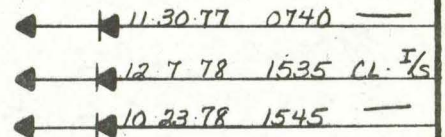 11·30·77 0740 —
12 7 78 1535 CL· I/S
10 23·78 1545 —